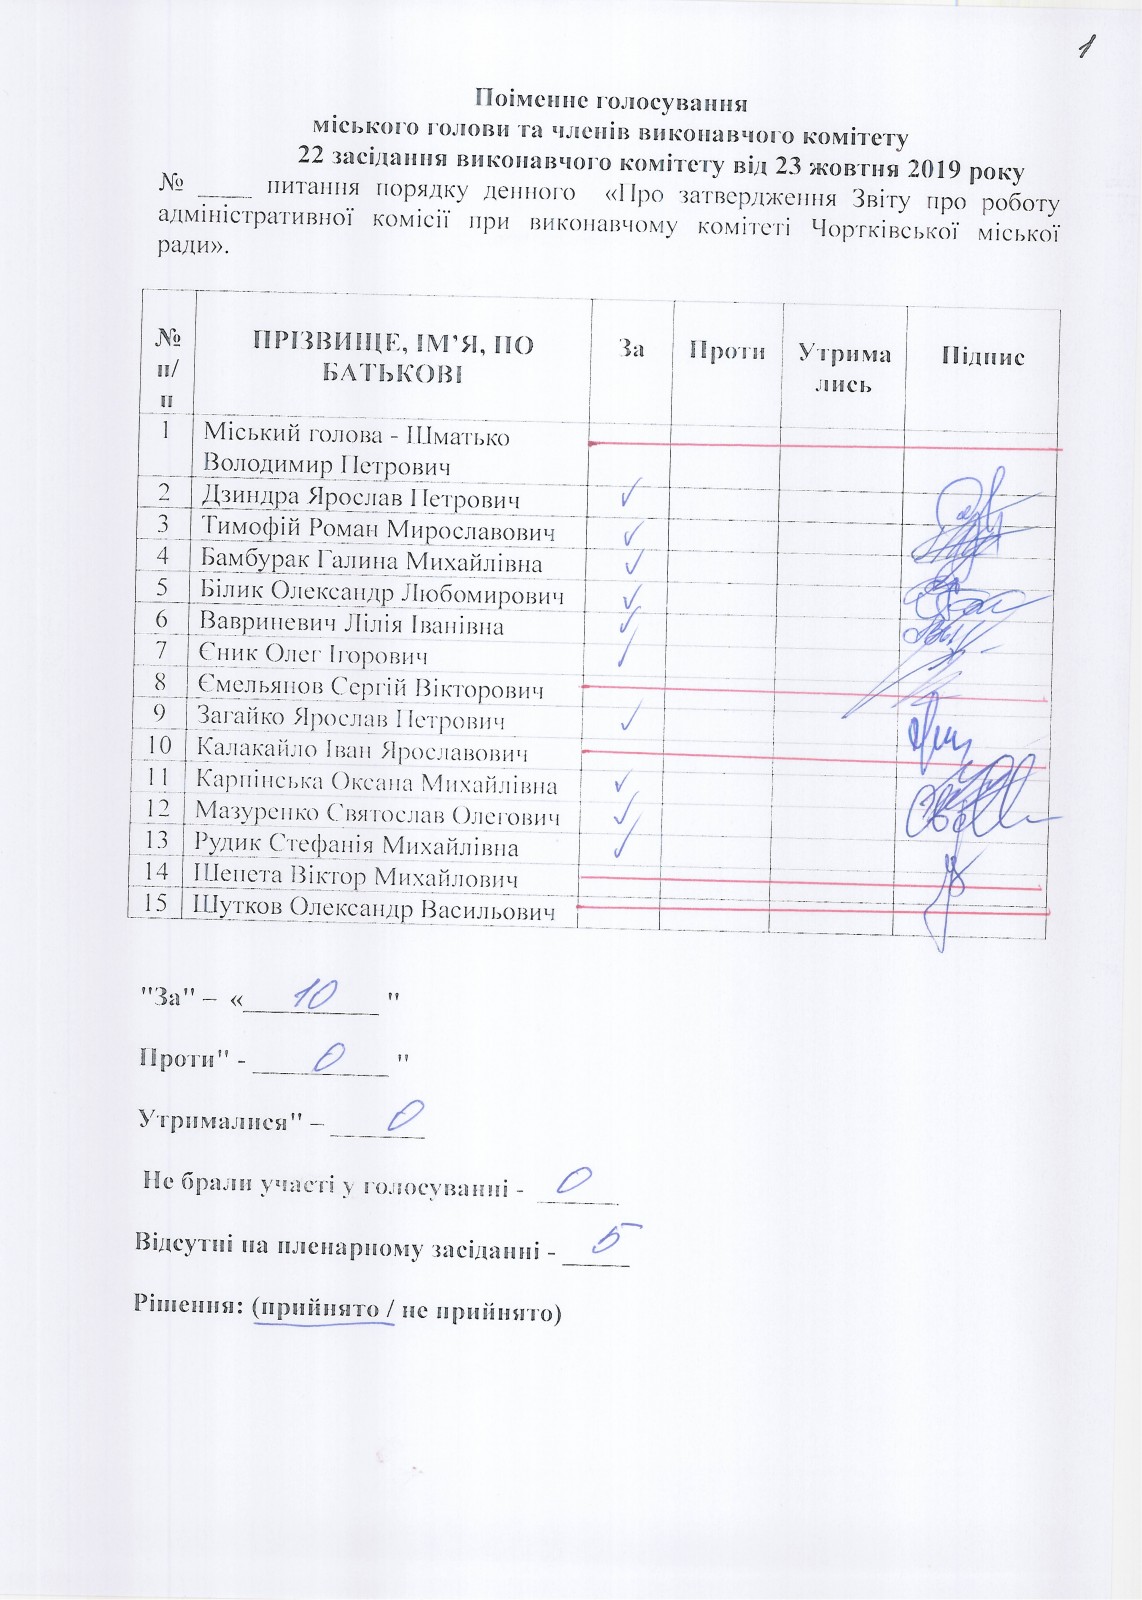 1
Поіменне голосування
міського голови та членів виконавчого комітету
22 засідання виконавчого комітету від 23 жовтня 2019 року
№ ____ питання порядку денного «Про затвердження Звіту про роботу
адміністративної комісії при виконавчому комітеті Чортківської міської
ради».
№ п/п ПРІЗВИЩЕ, ІМ’Я, ПО БАТЬКОВІ За Проти Утрима лись Підпис
1 Міський голова - Шматько
Володимир Петрович
2 Дзиндра Ярослав Петрович ✓
3 Тимофій Роман Мирославович ✓
4 Бамбурак Галина Михайлівна ✓
5 Білик Олександр Любомирович ✓
6 Вавриневич Лілія Іванівна ✓
7 Єник Олег Ігорович ✓
8 Ємельянов Сергій Вікторович
9 Загайко Ярослав Петрович ✓
10 Калакайло Іван Ярославович
11 Карпінська Оксана Михайлівна ✓
12 Мазуренко Святослав Олегович ✓
13 Рудик Стефанія Михайлівна ✓
14 Шепета Віктор Михайлович
15 Шутков Олександр Васильович
"За" – «____10____ "
Проти" - ____0____ "
Утрималися" – ____0__
Не брали участі у голосуванні - __0__
Відсутні на пленарному засіданні - __5__
Рішення: (прийнято / не прийнято)